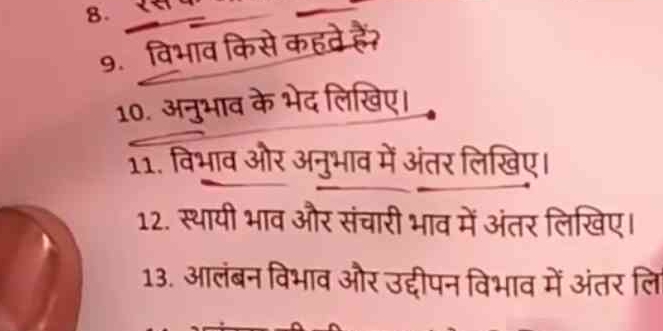 8.
9. विभाव किसे कहते हैं?
10. अनुभाव के भेद लिखिए।
11. विभाव और अनुभाव में अंतर लिखिए।
12. स्थायी भाव और संचारी भाव में अंतर लिखिए।
13. आलंबन विभाव और उद्दीपन विभाव में अंतर लि